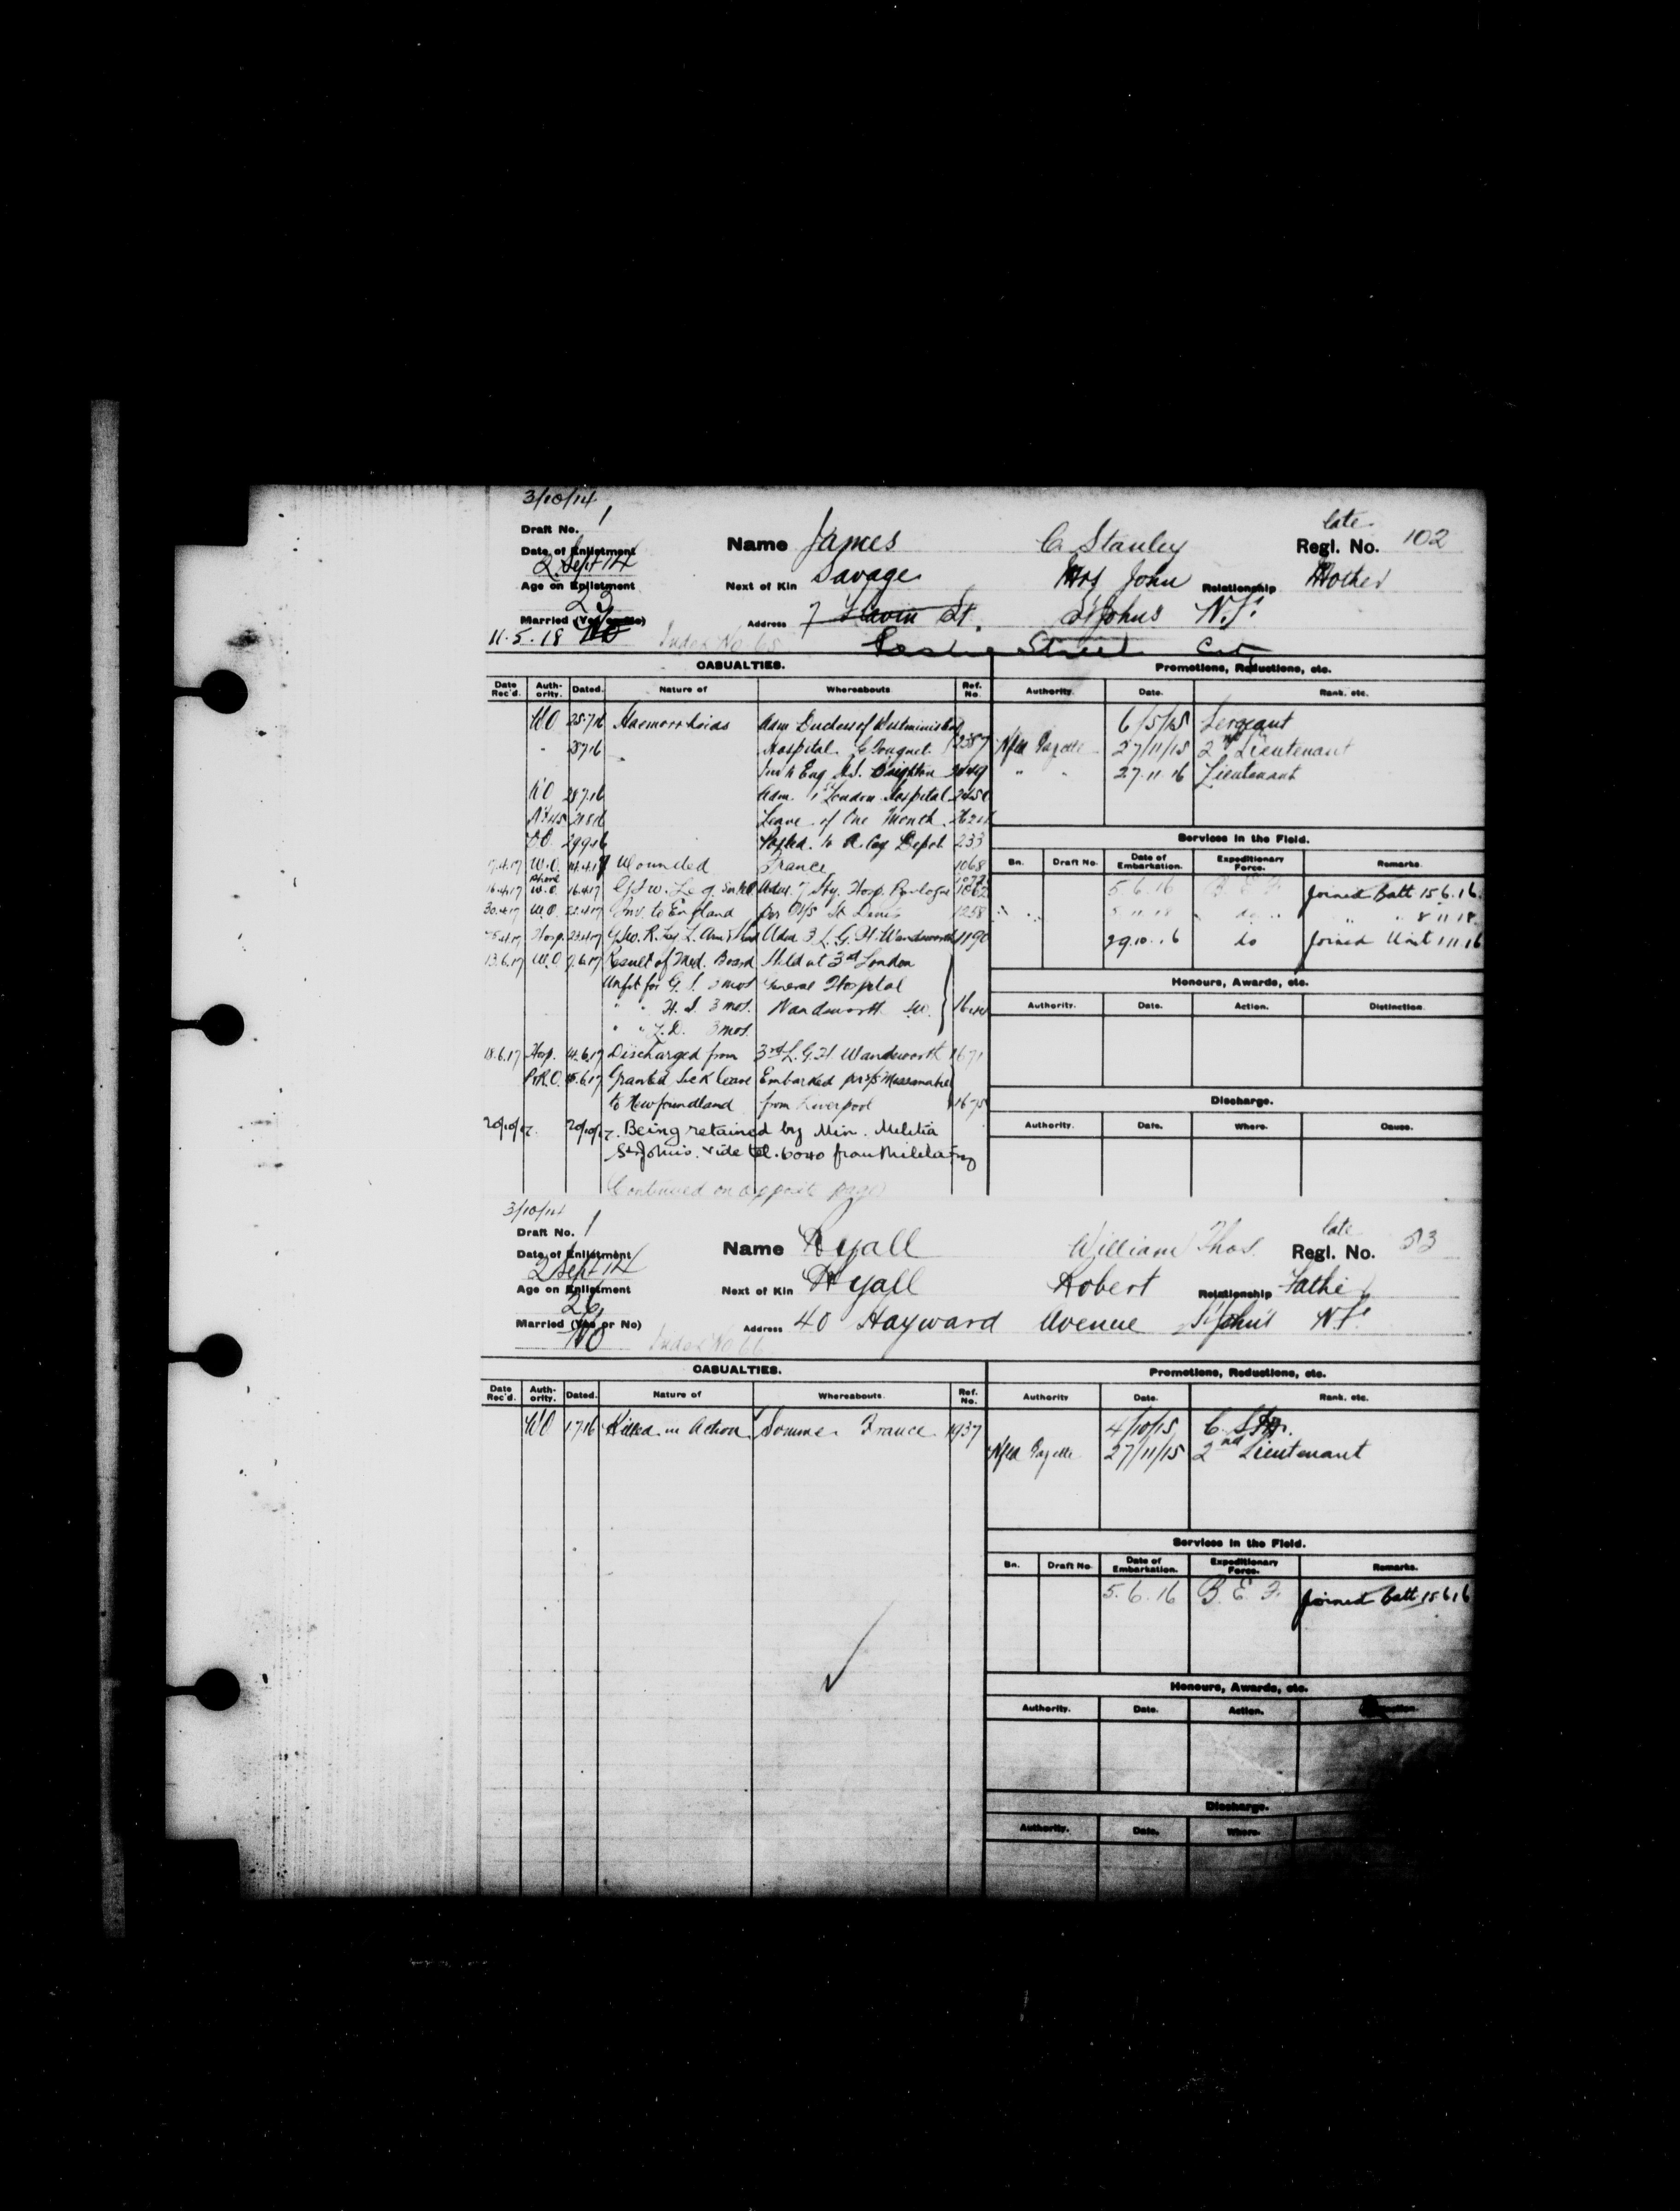 3/10/14
Draft No. 1
Date of Enlistment
2 Sept 14
Name James C. Stanley late Regl. No. 102
Age on Enlistment
23
Next of Kin Savage Mrs John Relationship Mother
Married (Yes or No)
No
Address 7 St. St Johns N.F.
11.5.18 Index No 65 Street City
CASUALTIES.
Date Rec'd. Authority. Dated. Nature of Whereabouts Ref. No.
WO 25.7.16 Haemorrhoids Adm Duchess of Westminster
" 25716 Hospital 2387
Inv to Eng H.S. Brighton 2449
WO 28716 Adm. 1st London Hospital 2450
Leave of One Month
29916 Posted to Depot 233
W.O. 14.4.17 Wounded France 1068
16.4.17 W.O. 16.4.17 Adm. 7 Sty. Hosp. Boulogne
30.4.17 W.O. 22.4.17 Inv. to England per H/S St Denis 1258
Hosp. 23.4.17 G.S.W. R. Leg L. Arm & Adm 3 L. G. H. Wandsworth 1190
13.6.17 W.O. 9.6.17 Result of Med. Board Held at 3rd London
Unfit for G. S. 3 mos General Hospital
" " H. S. 3 mos. Wandsworth S.W.
" " L. D. 3 mos.
18.6.17 Hosp. 14.6.17 Discharged from 3rd L. G. H. Wandsworth 1671
P.&R.O. 15.6.17 Granted Sick leave Embarked per S/S
to Newfoundland from Liverpool 1675
20/10/17. 20/10/17. Being retained by Min. Militia
St Johns. vide tel. 6040 from Militia
Continued on opposite page
Promotions, Reductions, etc.
Authority. Date. Rank. etc.
6/5/15 Sergeant
Nfld Gazette 27/11/15 2nd Lieutenant
" " 27.11.16 Lieutenant
Services in the Field.
Bn. Draft No. Date of Embarkation. Expeditionary Force. Remarks.
5.6.16 B. E. F. Joined Batt 15.6.16
5.11.18 do " " 8 11 18
29.10.16 do Joined Unit 1 11 16
Honours, Awards, etc.
Authority. Date. Action. Distinction.
Discharge.
Authority. Date. Where. Cause.
3/10/14
Draft No. 1
Date of Enlistment
2 Sept 14
Name Ryall William Thos. late Regl. No. 53
Age on Enlistment
26
Next of Kin Ryall Robert Relationship Father
Married (Yes or No)
No
Address 40 Hayward Avenue St John's N.F.
Index No 66
CASUALTIES.
Date Rec'd. Authority. Dated. Nature of Whereabouts. Ref. No.
WO 1716 Killed in Action Somme France 1937
Promotions, Reductions, etc.
Authority Date. Rank. etc.
4/10/15
Nfld Gazette 27/11/15 2nd Lieutenant
Services in the Field.
Bn. Draft No. Date of Embarkation. Expeditionary Force. Remarks.
5.6.16 B. E. F. Joined Batt 15.6.16
Honours, Awards, etc.
Authority. Date. Action.
Discharge.
Authority. Date. Where.